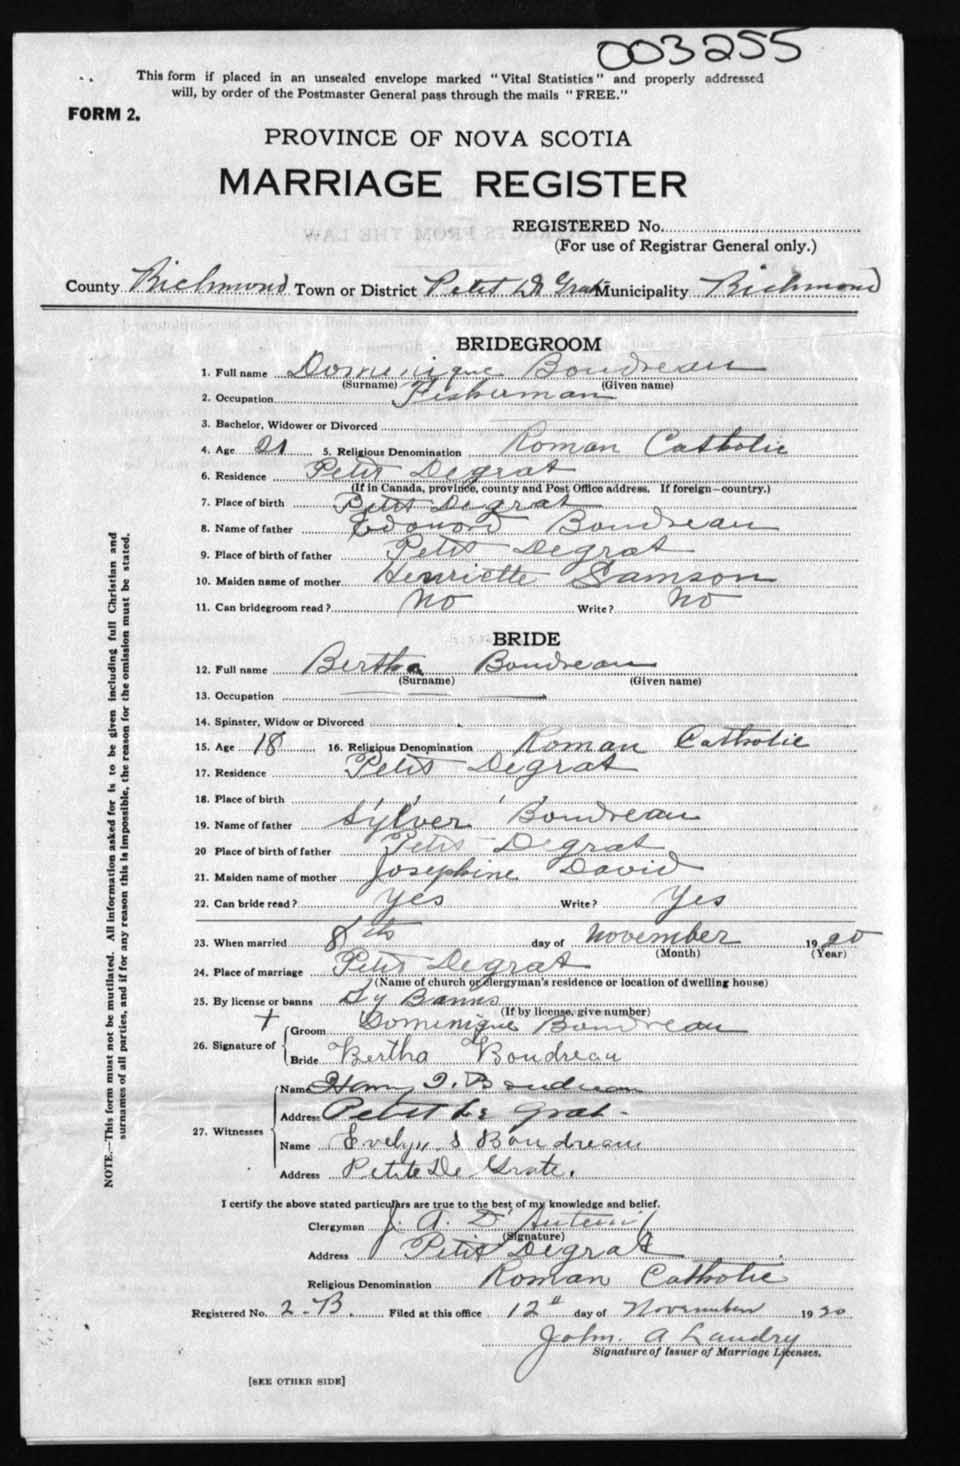 003255
This form if placed in an unsealed envelope marked "Vital Statistics" and properly addressed
will, by order of the Postmaster General pass through the mails "FREE."
FORM 2.
PROVINCE OF NOVA SCOTIA
MARRIAGE REGISTER
REGISTERED No.
(For use of Registrar General only.)
County Richmond Town or District Petit De Grat Municipality Richmond
BRIDEGROOM
1. Full name Dominique Boudreau
(Surname) (Given name)
2. Occupation Fisherman
3. Bachelor, Widower or Divorced
4. Age 21 5. Religious Denomination Roman Catholic
6. Residence Petit Degrat
(If in Canada, province, county and Post Office address. If foreign—country.)
7. Place of birth Petit Degrat
8. Name of father Edouord Boudreau
9. Place of birth of father Petit Degrat
10. Maiden name of mother Henriette Samson
11. Can bridegroom read? No Write? No
BRIDE
12. Full name Bertha Boudreau
(Surname) (Given name)
13. Occupation — — —
14. Spinster, Widow or Divorced
15. Age 18 16. Religious Denomination Roman Catholic
17. Residence Petit Degrat
18. Place of birth ' ' ' '
19. Name of father Sylver Boudreau
20 Place of birth of father Petit Degrat
21. Maiden name of mother Josephine David
22. Can bride read? Yes Write? Yes
23. When married 8th day of November 1920
(Month) (Year)
24. Place of marriage Petit Degrat
(Name of church or clergyman's residence or location of dwelling house)
25. By license or banns By Banns
(If by license, give number)
+
26. Signature of Groom Dominique Boudreau
Bride Bertha Boudreau
27. Witnesses Name Boudreau
Address Petit De Grat -
Name Evelyn S Boudreau
Address Petite De Grate.
I certify the above stated particulars are true to the best of my knowledge and belief.
Clergyman J. A. D'
(Signature)
Address Petit Degrat
Religious Denomination Roman Catholic
Registered No. 2-B. Filed at this office 12th day of November 1920
John. A Landry
Signature of Issuer of Marriage Licenses.
[SEE OTHER SIDE]
NOTE.—This form must not be mutilated. All information asked for is to be given including full Christian and
surnames of all parties, and if for any reason this is impossible, the reason for the omission must be stated.